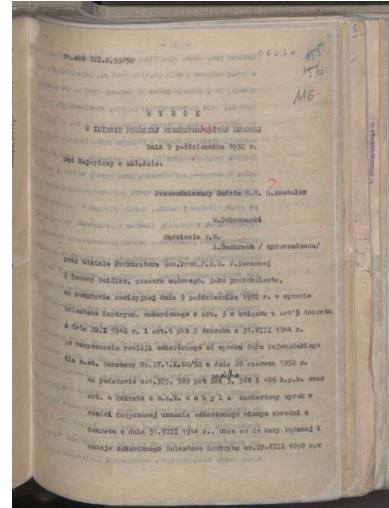 Odpis
Nr.akt III.K.93/52
155
156
116
W Y R O K
W IMIENIU POLSKIEJ RZECZYPOSPOLITEJ LUDOWEJ
Dnia 9 października 1952 r.
Sąd Najwyższy w składzie:
Przewodniczący Sędzia S.N. G.Auscaler
M.Dobromęski
Sędziowie S.N.
A.Bachrach / sprawozdawca/
przy udziale Prokuratora Gen.Prok.P.R.L. P.Kernowej
i Teresy Beidler, asesora sądowego, jako protokolanta,
na rozprawie rewizyjnej dnia 9 października 1952 r. w sprawie
Bolesława Kontryma, oskarżonego z art. 3 w związku z art 5 dekretu
z dnia 22.I 1946 r. i art.1 pkt 2 dekretu z 31.VIII 1944 r.
po rozpoznaniu rewizji oskarżonego od wyroku Sądu Wojewódzkiego
dla m.st. Warszawy Nr.IV.1.K.60/52 z dnia 26 czerwca 1952 r.
na podstawie art.375, 383 pkt 3, 388 i 499 k.p.k. oraz
art. 4 dekretu o o.s.W. u c h y l a zaskarżony wyrok w
części dotyczącej uznania oskarżonego winnym zbrodni z
dekretu z dnia 31.VIII 1944 r., oraz co do kary łącznej i
uznaje oskarżonego Bolesława Kontryma ur.27.VIII 1898 r.w